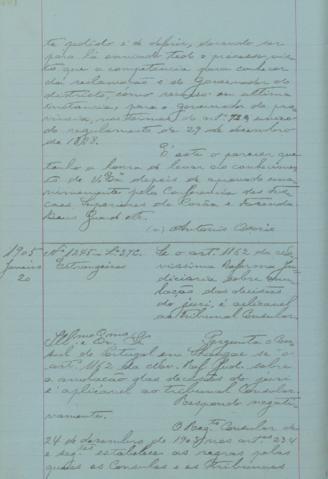 te pedido é de deferir, devendo ser
para lá enviado todo o processo, vis-
to que a competencia para conhecer
da reclamação é do Governador do
districto, como recurso em ultima
instancia, para o governador da pro-
vincia, nos termos do artº
do regulamento de 29 de dezembro
de
É este o parecer que
tenho a honra de levar ao conhecimen-
to de V. Exª depois de approvado una-
nimemente pela Conferencia dos Fis-
caes Superiores da Corôa e Fazenda
Deus Guarde etc.
(a) Antonio
1905
Janeiro
20
Nº 1245 - Lº 37C.
Estrangeiros
Se o artº 1162 da No-
vissima Reforma Ju-
diciaria sobre annu-
lação das decisões
do juri, é aplicavel
ao tribunal Consular.
Illmo e Exmo Sr.
Pergunta o Con-
sul de Portugal em Shangae se o
artº 1162 da Nov. Ref. Jud. sobre
a annulação das decisões do juri
é aplicavel ao tribunal Consular.
Respondo negati-
vamente.
O Regto Consular de
24 de dezembro de 1903 nos artos 234
e segtes estabelece as regras pelas
quaes os Consules e os Tribunaes